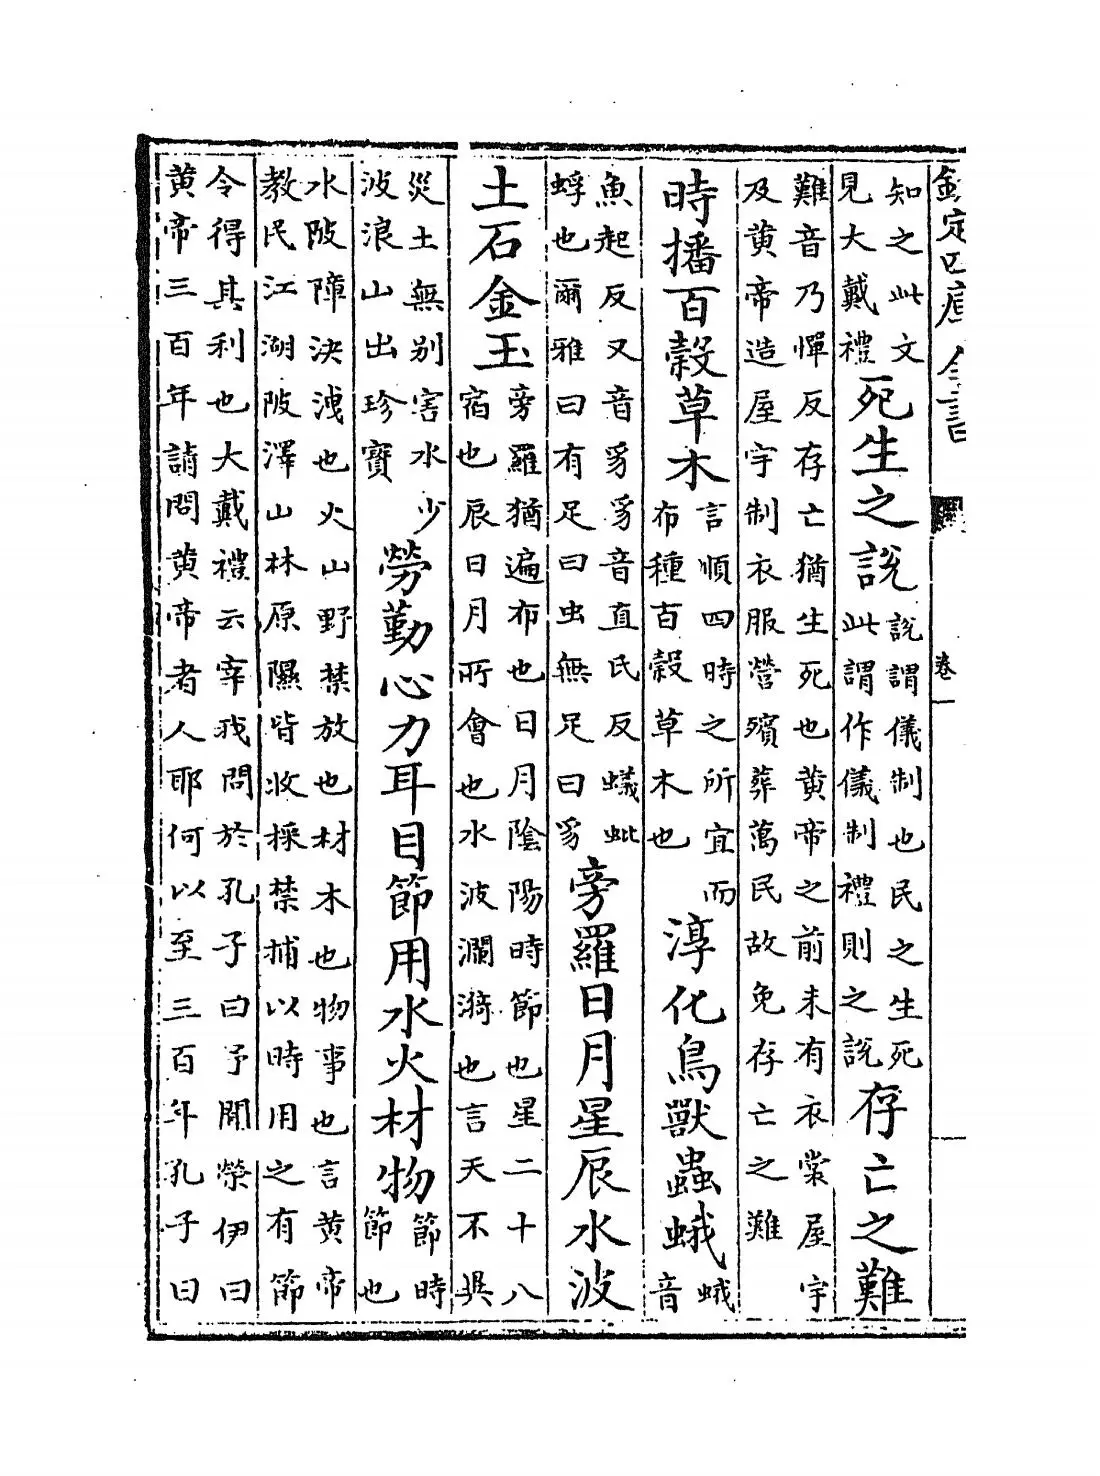 欽定四庫全書 卷一
知之此文見大戴禮死生之說說謂儀制也民之生死此謂作儀制禮則之說存亡之難
難音乃憚反存亡猶生死也黄帝之前未有衣裳屋宇
及黄帝造屋宇制衣服營殯葬萬民故免存亡之難
時播百榖草木言順四時之所宜而布種百榖草木也淳化鳥獸蟲蛾蛾音
魚起反又音豸豸音直氏反蟻蚍蜉也爾雅曰有足曰虫無足曰豸旁羅日月星辰水波
土石金玉旁羅猶遍布也日月陰陽時節也星二十八宿也辰日月所會也水波瀾漪也言天不異
災土無别害水少波浪山出珍寶勞勤心力耳目節用水火材物節時節也
水陂障決洩也火山野禁放也材木也物事也言黄帝
教民江湖陂澤山林原隰皆收採禁捕以時用之有節
令得其利也大戴禮云宰我問於孔子曰予聞榮伊曰
黄帝三百年請問黄帝者人耶何以至三百年孔子曰